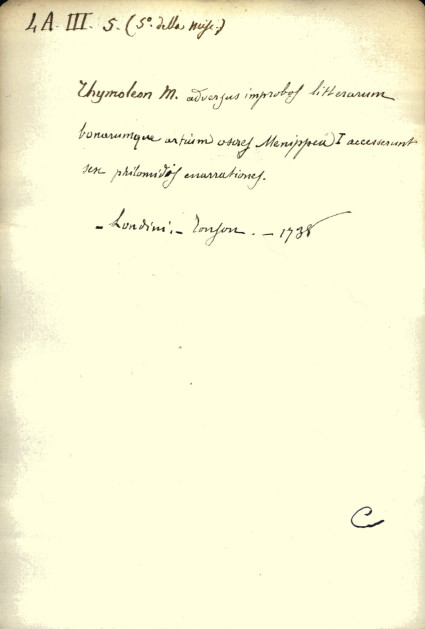 4 A. III. 5. (5º. della misc.)
Thymoleon M. adversus improbos litterarum
bonarumque artium osores Menippea I accesserunt
sex philomidis enarrationes.
- Londini. - Tonson. - 1738
C